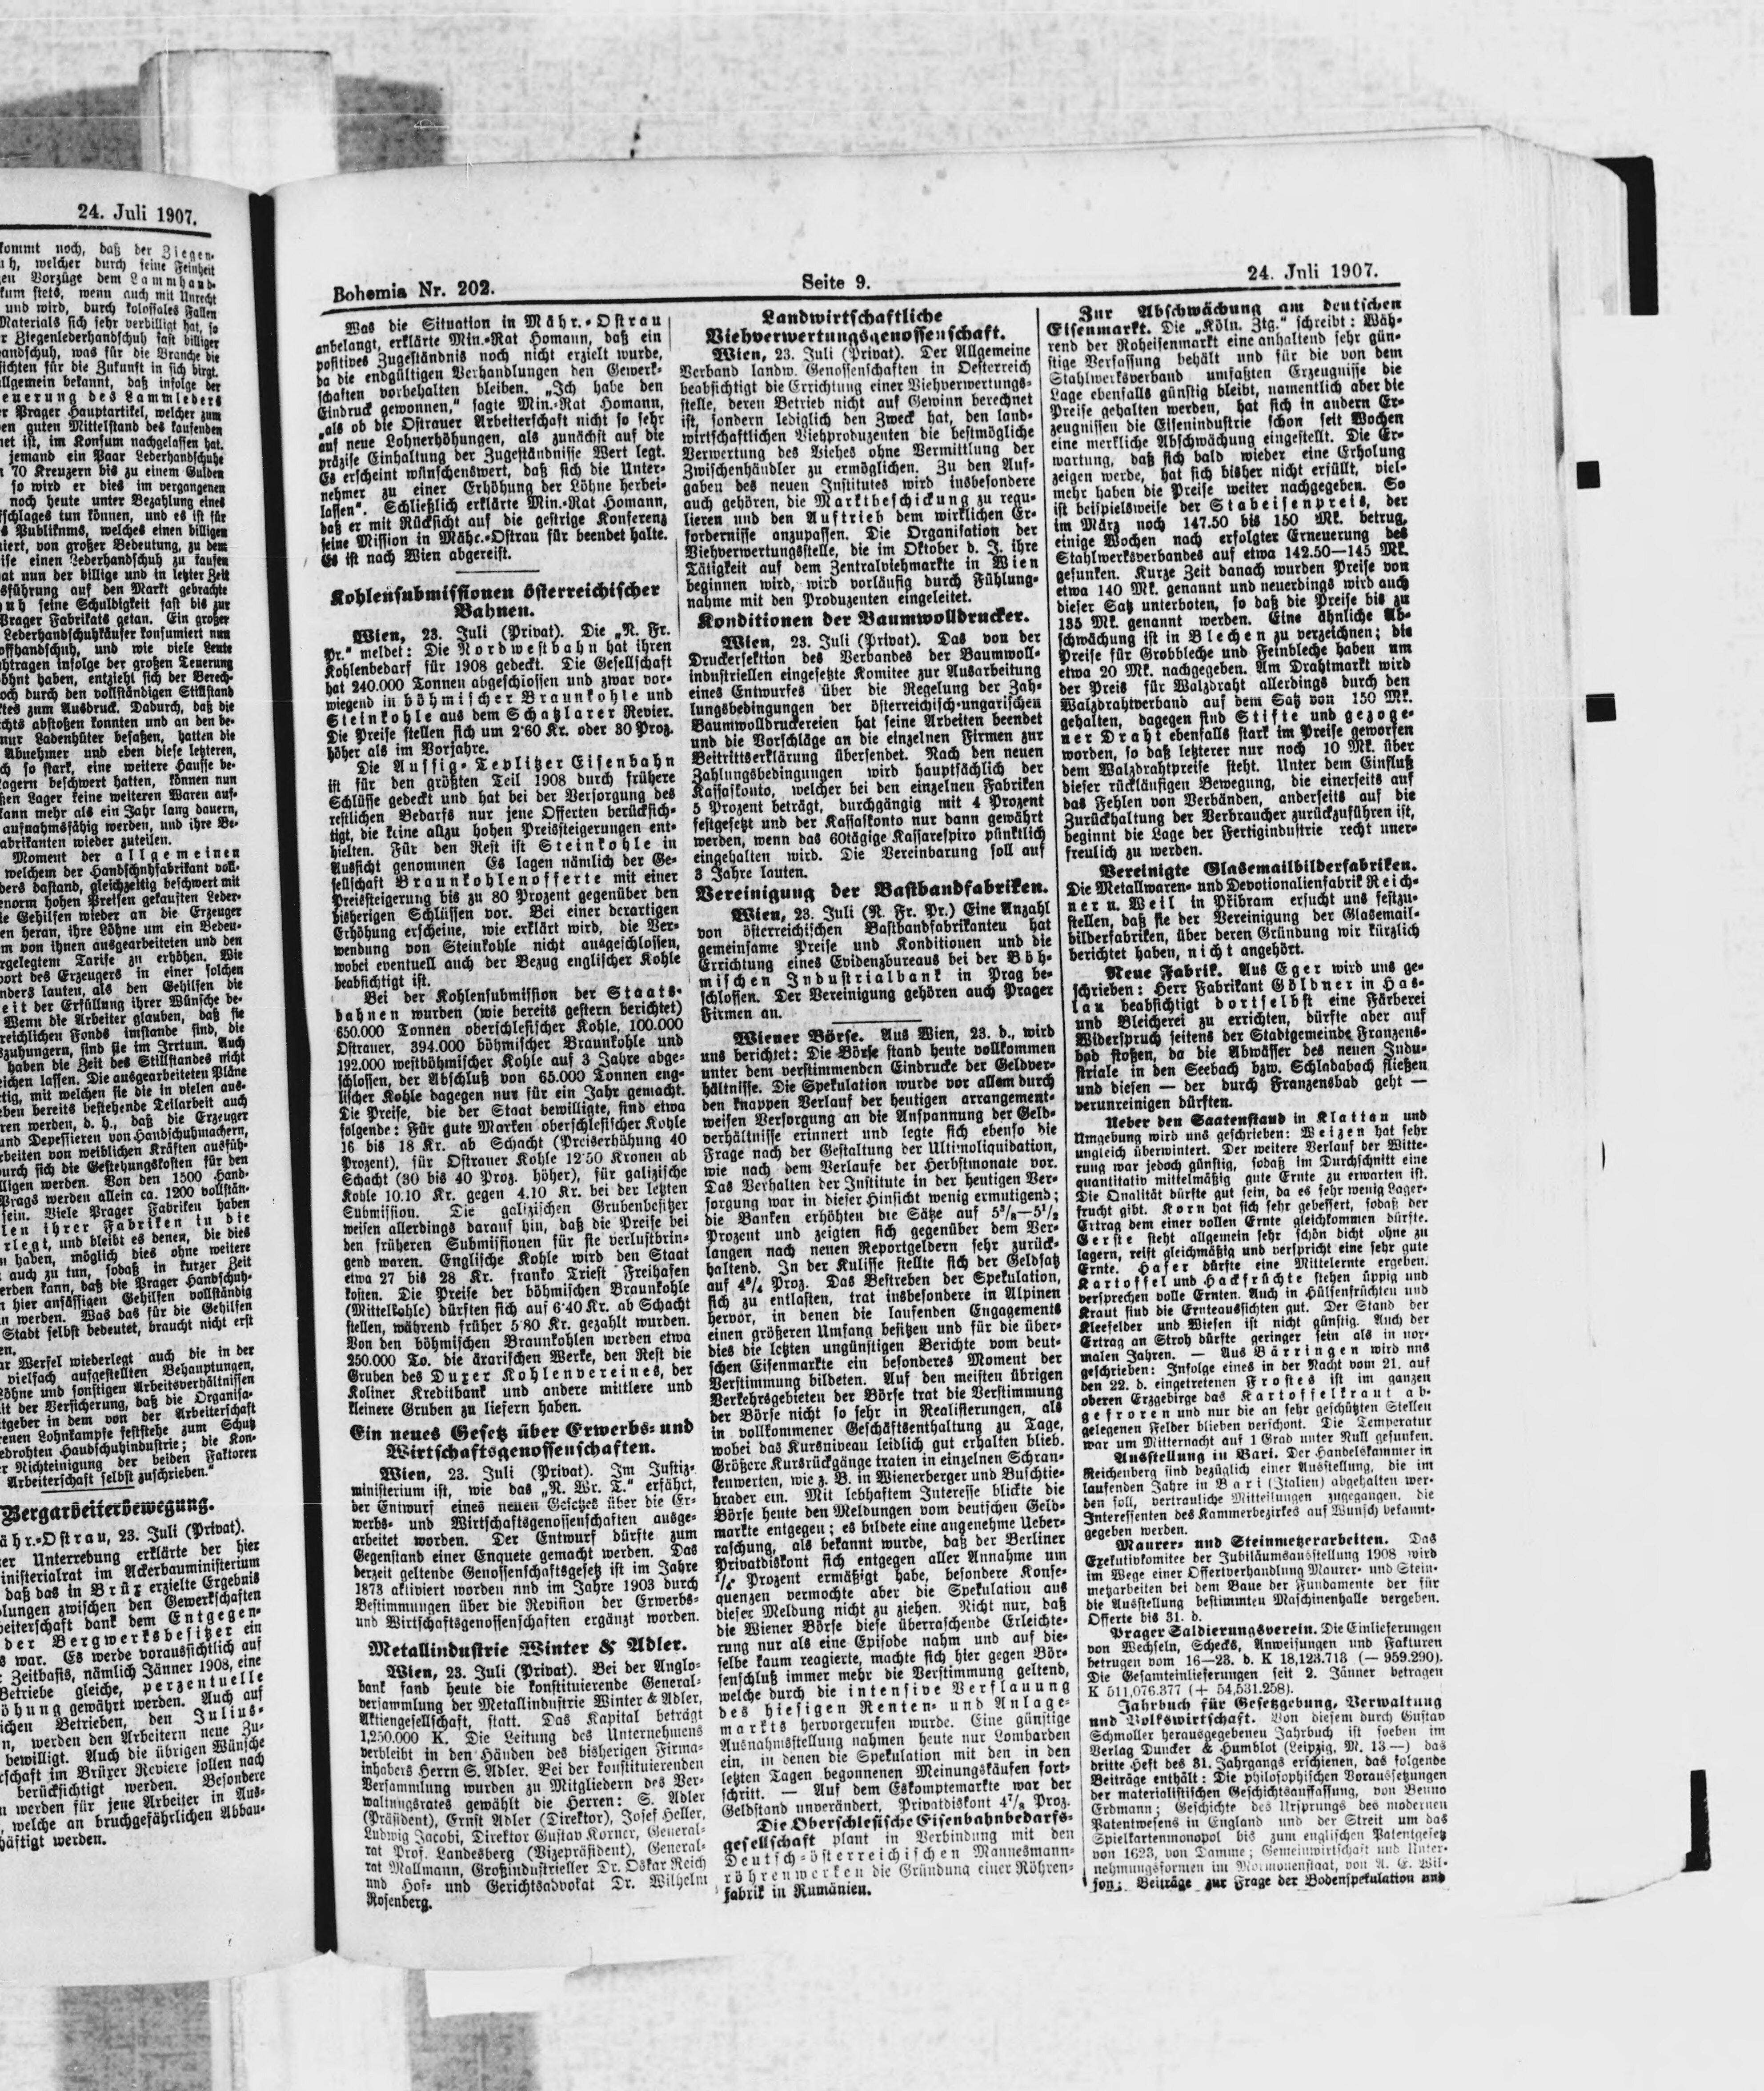 24. Juli 1907.
kommt noch, daß der Ziegen-
uh, welcher durch seine Feinheit
en Vorzüge dem Lammhand-
kum stets, wenn auch mit Unrecht
und wird, durch kolossales Fallen
Materials sich sehr verbilligt hat, so
r Ziegenlederhandschuh fast billiger
andschuh, was für die Branche die
sichten für die Zukunft in sich birgt.
llgemein bekannt, daß infolge der
euerung des Lammleders
er Prager Hauptartikel, welcher zum
en guten Mittelstand des kaufenden
net ist, im Konsum nachgelassen hat.
jemand ein Paar Lederhandschuhe
n 70 Kreuzern bis zu einem Gulden
so wird er dies im vergangenen
noch heute unter Bezahlung eines
schlages tun können, und es ist für
s Publikums, welches einen billigen
niert, von großer Bedeutung, zu dem
ise einen Lederhandschuh zu kaufen
at nun der billige und in letzter Zeit
sführung auf den Markt gebrachte
uh seine Schuldigkeit fast bis zur
Prager Fabrikats getan. Ein großer
Lederhandschuhkäufer konsumiert nun
offhandschuh, und wie viele Leute
htragen infolge der großen Teuerung
öhnt haben, entzieht sich der Berech-
och durch den vollständigen Stillstand
ktes zum Ausdruck. Dadurch, daß die
chts abstoßen konnten und an den be-
nur Ladenhüter besaßen, hatten die
Abnehmer und eben diese letzteren,
ch so stark, eine weitere Hausse be-
agern beschwert hatten, können nun
ßen Lager keine weiteren Waren auf-
ann mehr als ein Jahr lang dauern,
aufnahmsfähig werden, und ihre Be-
abrikanten wieder zuteilen.
Moment der allgemeinen
welchem der Handschuhfabrikant voll-
ders dastand, gleichzeitig beschwert mit
enorm hohen Preisen gekauften Leder-
e Gehilfen wieder an die Erzeuger
en heran, ihre Löhne um ein Bedeu-
m von ihnen ausgearbeiteten und den
rgelegtem Tarife zu erhöhen. Wie
port des Erzeugers in einer solchen
nders lauten, als den Gehilfen die
eit der Erfüllung ihrer Wünsche be-
Wenn die Arbeiter glauben, daß sie
reichlichen Fonds imstande sind, die
zuhungern, sind sie im Irrtum. Auch
haben die Zeit des Stillstandes nicht
eichen lassen. Die ausgearbeiteten Pläne
tig, mit welchen sie die in vielen aus-
ben bereits bestehende Teilarbeit auch
ren werden, d. h., daß die Erzeuger
und Depessieren von Handschuhmachern,
rbeiten von weiblichen Kräften ausfüh-
urch sich die Gestehungskosten für den
lligen werden. Von den 1500 Hand-
Prags werden allein ca. 1200 vollstän-
sein. Viele Prager Fabriken haben
len ihrer Fabriken in die
rlegt, und bleibt es denen, die dies
n haben, möglich dies ohne weitere
auch zu tun, sodaß in kurzer Zeit
erden kann, daß die Prager Handschuh-
n hier ansässigen Gehilfen vollständig
n werden. Was das für die Gehilfen
Stadt selbst bedeutet, braucht nicht erst
en.
ar Werfel wiederlegt auch die in der
vielfach aufgestellten Behauptungen,
Löhne und sonstigen Arbeitsverhältnissen
it der Versicherung, daß die Organisa-
tgeber in dem von der Arbeiterschaft
enen Lohnkampfe feststehe zum Schutz
edrohten Haudschuhindustrie; die Kon-
r Nichteinigung der beiden Faktoren
Arbeiterschaft selbst zuschrieben."
Bergarbeiterbewegung.
ähr.-Ostrau, 23. Juli (Privat).
er Unterredung erklärte der hier
inisterialrat im Ackerbauministerium
daß das in Brüx erzielte Ergebnis
lungen zwischen den Gewerkschaften
beiterschaft dank dem Entgegen-
der Bergwerksbesitzer ein
s war. Es werde voraussichtlich auf
Zeitbasis, nämlich Jänner 1908, eine
Betriebe gleiche, perzentuelle
öhung gewährt werden. Auch auf
ichen Betrieben, den Julius-
n, werden den Arbeitern neue Zu-
bewilligt. Auch die übrigen Wünsche
rschaft im Brüxer Reviere sollen nach
berücksichtigt werden. Besondere
n werden für jene Arbeiter in Aus-
, welche an bruchgefährlichen Abbau-
häftigt werden.
Bohemia Nr. 202.
Seite 9.
24. Juli 1907.
Was die Situation in Mähr.-Ostrau
anbelangt, erklärte Min.-Rat Homann, daß ein
positives Zugeständnis noch nicht erzielt wurde,
da die endgültigen Verhandlungen den Gewerk-
schaften vorbehalten bleiben. „Ich habe den
Eindruck gewonnen," sagte Min.-Rat Homann,
„als ob die Ostrauer Arbeiterschaft nicht so sehr
auf neue Lohnerhöhungen, als zunächst auf die
präzise Einhaltung der Zugeständnisse Wert legt.
Es erscheint wünschenswert, daß sich die Unter-
nehmer zu einer Erhöhung der Löhne herbei-
lassen". Schließlich erklärte Min.-Rat Homann,
daß er mit Rücksicht auf die gestrige Konferenz
seine Mission in Mähr.-Ostrau für beendet halte.
Es ist nach Wien abgereist.
Kohlensubmissionen österreichischer
Bahnen.
Wien, 23. Juli (Privat). Die „N. Fr.
Pr." meldet: Die Nordwestbahn hat ihren
Kohlenbedarf für 1908 gedeckt. Die Gesellschaft
hat 240.000 Tonnen abgeschlossen und zwar vor-
wiegend in böhmischer Braunkohle und
Steinkohle aus dem Schatzlarer Revier.
Die Preise stellen sich um 2·60 Kr. oder 30 Proz.
höher als im Vorjahre.
Die Aussig-Teplitzer Eisenbahn
ist für den größten Teil 1908 durch frühere
Schlüsse gedeckt und hat bei der Versorgung des
restlichen Bedarfs nur jene Offerten berücksich-
tigt, die keine allzu hohen Preissteigerungen ent-
hielten. Für den Rest ist Steinkohle in
Aussicht genommen Es lagen nämlich der Ge-
sellschaft Braunkohlenofferte mit einer
Preissteigerung bis zu 80 Prozent gegenüber den
bisherigen Schlüssen vor. Bei einer derartigen
Erhöhung erscheine, wie erklärt wird, die Ver-
wendung von Steinkohle nicht ausgeschlossen,
wobei eventuell auch der Bezug englischer Kohle
beabsichtigt ist.
Bei der Kohlensubmission der Staats-
bahnen wurden (wie bereits gestern berichtet)
650.000 Tonnen oberschlesischer Kohle, 100.000
Ostrauer, 394.000 böhmischer Braunkohle und
192.000 westböhmischer Kohle auf 3 Jahre abge-
schlossen, der Abschluß von 65.000 Tonnen eng-
lischer Kohle dagegen nur für ein Jahr gemacht.
Die Preise, die der Staat bewilligte, sind etwa
folgende: Für gute Marken oberschlesischer Kohle
16 bis 18 Kr. ab Schacht (Preiserhöhung 40
Prozent), für Ostrauer Kohle 12·50 Kronen ab
Schacht (30 bis 40 Proz. höher), für galizische
Kohle 10.10 Kr. gegen 4.10 Kr. bei der letzten
Submission. Die galizischen Grubenbesitzer
weisen allerdings darauf hin, daß die Preise bei
den früheren Submissionen für sie verlustbrin-
gend waren. Englische Kohle wird den Staat
etwa 27 bis 28 Kr. franko Triest Freihafen
kosten. Die Preise der böhmischen Braunkohle
(Mittelkohle) dürften sich auf 6·40 Kr. ab Schacht
stellen, während früher 5·80 Kr. gezahlt wurden.
Von den böhmischen Braunkohlen werden etwa
250.000 To. die ärarischen Werke, den Rest die
Gruben des Duxer Kohlenvereines, der
Koliner Kreditbank und andere mittlere und
kleinere Gruben zu liefern haben.
Ein neues Gesetz über Erwerbs- und
Wirtschaftsgenossenschaften.
Wien, 23. Juli (Privat). Im Justiz-
ministerium ist, wie das „N. Wr. T." erfährt,
der Entwurf eines neuen Gesetzes über die Er-
werbs- und Wirtschaftsgenossenschaften ausge-
arbeitet worden. Der Entwurf dürfte zum
Gegenstand einer Enquete gemacht werden. Das
derzeit geltende Genossenschaftsgesetz ist im Jahre
1873 aktiviert worden nnd im Jahre 1903 durch
Bestimmungen über die Revision der Erwerbs-
und Wirtschaftsgenossenschaften ergänzt worden.
Metallindustrie Winter & Adler.
Wien, 23. Juli (Privat). Bei der Anglo-
bank fand heute die konstituierende General-
versammlung der Metallindustrie Winter & Adler,
Aktiengesellschaft, statt. Das Kapital beträgt
1,250.000 K. Die Leitung des Unternehmens
verbleibt in den Händen des bisherigen Firma-
inhabers Herrn S. Adler. Bei der konstituierenden
Versammlung wurden zu Mitgliedern des Ver-
waltungsrates gewählt die Herren: S. Adler
(Präsident), Ernst Adler (Direktor), Josef Heller,
Ludwig Jacobi, Direktor Gustav Korner, General-
rat Prof. Landesberg (Vizepräsident), General-
rat Mallmann, Großindustrieller Dr. Oskar Reich
und Hof- und Gerichtsadvokat Dr. Wilhelm
Rosenberg.
Landwirtschaftliche
Viehverwertungsgenossenschaft.
Wien, 23. Juli (Privat). Der Allgemeine
Verband landw. Genossenschaften in Oesterreich
beabsichtigt die Errichtung einer Viehverwertungs-
stelle, deren Betrieb nicht auf Gewinn berechnet
ist, sondern lediglich den Zweck hat, den land-
wirtschaftlichen Viehproduzenten die bestmögliche
Verwertung des Viehes ohne Vermittlung der
Zwischenhändler zu ermöglichen. Zu den Auf-
gaben des neuen Institutes wird insbesondere
auch gehören, die Marktbeschickung zu regu-
lieren und den Auftrieb dem wirklichen Er-
fordernisse anzupassen. Die Organisation der
Viehverwertungsstelle, die im Oktober d. J. ihre
Tätigkeit auf dem Zentralviehmarkte in Wien
beginnen wird, wird vorläufig durch Fühlung-
nahme mit den Produzenten eingeleitet.
Konditionen der Baumwolldrucker.
Wien, 23. Juli (Privat). Das von der
Druckersektion des Verbandes der Baumwoll-
industriellen eingesetzte Komitee zur Ausarbeitung
eines Entwurfes über die Regelung der Zah-
lungsbedingungen der österreichisch-ungarischen
Baumwolldruckereien hat seine Arbeiten beendet
und die Vorschläge an die einzelnen Firmen zur
Beitrittserklärung übersendet. Nach den neuen
Zahlungsbedingungen wird hauptsächlich der
Kassaskonto, welcher bei den einzelnen Fabriken
5 Prozent beträgt, durchgängig mit 4 Prozent
festgesetzt und der Kassaskonto nur dann gewährt
werden, wenn das 60tägige Kassarespiro pünktlich
eingehalten wird. Die Vereinbarung soll auf
3 Jahre lauten.
Vereinigung der Bastbandfabriken.
Wien, 23. Juli (N. Fr. Pr.) Eine Anzahl
von österreichischen Bastbandfabrikanteu hat
gemeinsame Preise und Konditionen und die
Errichtung eines Evidenzbureaus bei der Böh-
mischen Industrialbank in Prag be-
schlossen. Der Vereinigung gehören auch Prager
Firmen an.
Wiener Börse. Aus Wien, 23. d., wird
uns berichtet: Die Börse stand heute vollkommen
unter dem verstimmenden Eindrucke der Geldver-
hältnisse. Die Spekulation wurde vor allem durch
den knappen Verlauf der heutigen arrangement-
weisen Versorgung an die Anspannung der Geld-
verhältnisse erinnert und legte sich ebenso die
Frage nach der Gestaltung der Ultimoliquidation,
wie nach dem Verlaufe der Herbstmonate vor.
Das Verhalten der Institute in der heutigen Ver-
sorgung war in dieser Hinsicht wenig ermutigend;
die Banken erhöhten die Sätze auf 5³/₈—5¹/₂
Prozent und zeigten sich gegenüber dem Ver-
langen nach neuen Reportgeldern sehr zurück-
haltend. In der Kulisse stellte sich der Geldsatz
auf 4³/₄ Proz. Das Bestreben der Spekulation,
sich zu entlasten, trat insbesondere in Alpinen
hervor, in denen die laufenden Engagements
einen größeren Umfang besitzen und für die über-
dies die letzten ungünstigen Berichte vom deut-
schen Eisenmarkte ein besonderes Moment der
Verstimmung bildeten. Auf den meisten übrigen
Verkehrsgebieten der Börse trat die Verstimmung
der Börse nicht so sehr in Realisierungen, als
in vollkommener Geschäftsenthaltung zu Tage,
wobei das Kursniveau leidlich gut erhalten blieb.
Größere Kursrückgänge traten in einzelnen Schran-
kenwerten, wie z. B. in Wienerberger und Buschtie-
hrader ein. Mit lebhaftem Interesse blickte die
Börse heute den Meldungen vom deutschen Geld-
markte entgegen; es bildete eine angenehme Ueber-
raschung, als bekannt wurde, daß der Berliner
Privatdiskont sich entgegen aller Annahme um
¹/₄ Prozent ermäßigt habe, besondere Konse-
quenzen vermochte aber die Spekulation aus
dieser Meldung nicht zu ziehen. Nicht nur, daß
die Wiener Börse diese überraschende Erleichte-
rung nur als eine Episode nahm und auf die-
selbe kaum reagierte, machte sich hier gegen Bör-
senschluß immer mehr die Verstimmung geltend,
welche durch die intensive Verflauung
des hiesigen Renten- und Anlage-
markts hervorgerufen wurde. Eine günstige
Ausnahmsstellung nahmen heute nur Lombarden
ein, in denen die Spekulation mit den in den
letzten Tagen begonnenen Meinungskäufen fort-
schritt. — Auf dem Eskomptemarkte war der
Geldstand unverändert, Privatdiskont 4⁷/₈ Proz.
Die Oberschlesische Eisenbahnbedarfs-
gesellschaft plant in Verbindung mit den
Deutsch-österreichischen Mannesmann-
röhrenwerken die Gründung einer Röhren-
fabrik in Rumänien.
Zur Abschwächung am deutschen
Eisenmarkt. Die „Köln. Ztg." schreibt: Wäh-
rend der Roheisenmarkt eine anhaltend sehr gün-
stige Verfassung behält und für die von dem
Stahlwerksverband umfaßten Erzeugnisse die
Lage ebenfalls günstig bleibt, namentlich aber die
Preise gehalten werden, hat sich in andern Er-
zeugnissen die Eisenindustrie schon seit Wochen
eine merkliche Abschwächung eingestellt. Die Er-
wartung, daß sich bald wieder eine Erholung
zeigen werde, hat sich bisher nicht erfüllt, viel-
mehr haben die Preise weiter nachgegeben. So
ist beispielsweise der Stabeisenpreis, der
im März noch 147.50 bis 150 Mk. betrug,
einige Wochen nach erfolgter Erneuerung des
Stahlwerksverbandes auf etwa 142.50—145 Mk.
gesunken. Kurze Zeit danach wurden Preise von
etwa 140 Mk. genannt und neuerdings wird auch
dieser Satz unterboten, so daß die Preise bis zu
135 Mk. genannt werden. Eine ähnliche Ab-
schwächung ist in Blechen zu verzeichnen; die
Preise für Grobbleche und Feinbleche haben um
etwa 20 Mk. nachgegeben. Am Drahtmarkt wird
der Preis für Walzdraht allerdings durch den
Walzdrahtverband auf dem Satz von 150 Mk.
gehalten, dagegen sind Stifte und gezoge-
ner Draht ebenfalls stark im Preise geworfen
worden, so daß letzterer nur noch 10 Mk. über
dem Walzdrahtpreise steht. Unter dem Einfluß
dieser rückläufigen Bewegung, die einerseits auf
das Fehlen von Verbänden, anderseits auf die
Zurückhaltung der Verbraucher zurückzuführen ist,
beginnt die Lage der Fertigindustrie recht uner-
freulich zu werden.
Vereinigte Glasemailbilderfabriken.
Die Metallwaren- und Devotionalienfabrik Reich-
ner u. Weil in Přibram ersucht uns festzu-
stellen, daß sie der Vereinigung der Glasemail-
bilderfabriken, über deren Gründung wir kürzlich
berichtet haben, nicht angehört.
Neue Fabrik. Aus Eger wird uns ge-
schrieben: Herr Fabrikant Göldner in Has-
lau beabsichtigt dortselbst eine Färberei
und Bleicherei zu errichten, dürfte aber auf
Widerspruch seitens der Stadtgemeinde Franzens-
bad stoßen, da die Abwässer des neuen Indu-
striale in den Seebach bzw. Schladabach fließen
und diesen — der durch Franzensbad geht —
verunreinigen dürften.
Ueber den Saatenstand in Klattau und
Umgebung wird uns geschrieben: Weizen hat sehr
ungleich überwintert. Der weitere Verlauf der Witte-
rung war jedoch günstig, sodaß im Durchschnitt eine
quantitativ mittelmäßig gute Ernte zu erwarten ist.
Die Qualität dürfte gut sein, da es sehr wenig Lager-
frucht gibt. Korn hat sich sehr gebessert, sodaß der
Ertrag dem einer vollen Ernte gleichkommen dürfte.
Gerste steht allgemein sehr schön dicht ohne zu
lagern, reift gleichmäßig und verspricht eine sehr gute
Ernte. Hafer dürfte eine Mittelernte ergeben.
Kartoffel und Hackfrüchte stehen üppig und
versprechen volle Ernten. Auch in Hülsenfrüchten und
Kraut sind die Ernteaussichten gut. Der Stand der
Kleefelder und Wiesen ist nicht günstig. Auch der
Ertrag an Stroh dürfte geringer sein als in nor-
malen Jahren. — Aus Bärringen wird nns
geschrieben: Infolge eines in der Nacht vom 21. auf
den 22. d. eingetretenen Frostes ist im ganzen
oberen Erzgebirge das Kartoffelkraut ab-
gefroren und nur die an sehr geschützten Stellen
gelegenen Felder blieben verschont. Die Temperatur
war um Mitternacht auf 1 Grad unter Null gesunken.
Ausstellung in Bari. Der Handelskammer in
Reichenberg sind bezüglich einer Ausstellung, die im
laufenden Jahre in Bari (Italien) abgehalten wer-
den soll, vertrauliche Mitteilungen zugegangen, die
Interessenten des Kammerbezirkes auf Wunsch bekannt-
gegeben werden.
Maurer- und Steinmetzerarbeiten. Das
Exekutivkomitee der Jubiläumsausstellung 1908 wird
im Wege einer Offertverhandlung Maurer- und Stein-
metzarbeiten bei dem Baue der Fundamente der für
die Ausstellung bestimmten Maschinenhalle vergeben.
Offerte bis 31. d.
Prager Saldierungsverein. Die Einlieferungen
von Wechseln, Schecks, Anweisungen und Fakturen
betrugen vom 16—23. d. K 18,123.713 (— 959.290).
Die Gesamteinlieferungen seit 2. Jänner betragen
K 511,076.377 (+ 54,531.258).
Jahrbuch für Gesetzgebung, Verwaltung
und Volkswirtschaft. Von diesem durch Gustav
Schmoller herausgegebenen Jahrbuch ist soeben im
Verlag Duncker & Humblot (Leipzig, M. 13—) das
dritte Heft des 31. Jahrgangs erschienen, das folgende
Beiträge enthält: Die philosophischen Voraussetzungen
der materialistischen Geschichtsauffassung, von Benno
Erdmann; Geschichte des Ursprungs des modernen
Patentwesens in England und der Streit um das
Spielkartenmonopol bis zum englischen Patentgesetz
von 1623, von Damme; Gemeinwirtschaft und Unter-
nehmungsformen im Mormonenstaat, von A. E. Wil-
son; Beiträge zur Frage der Bodenspekulation und